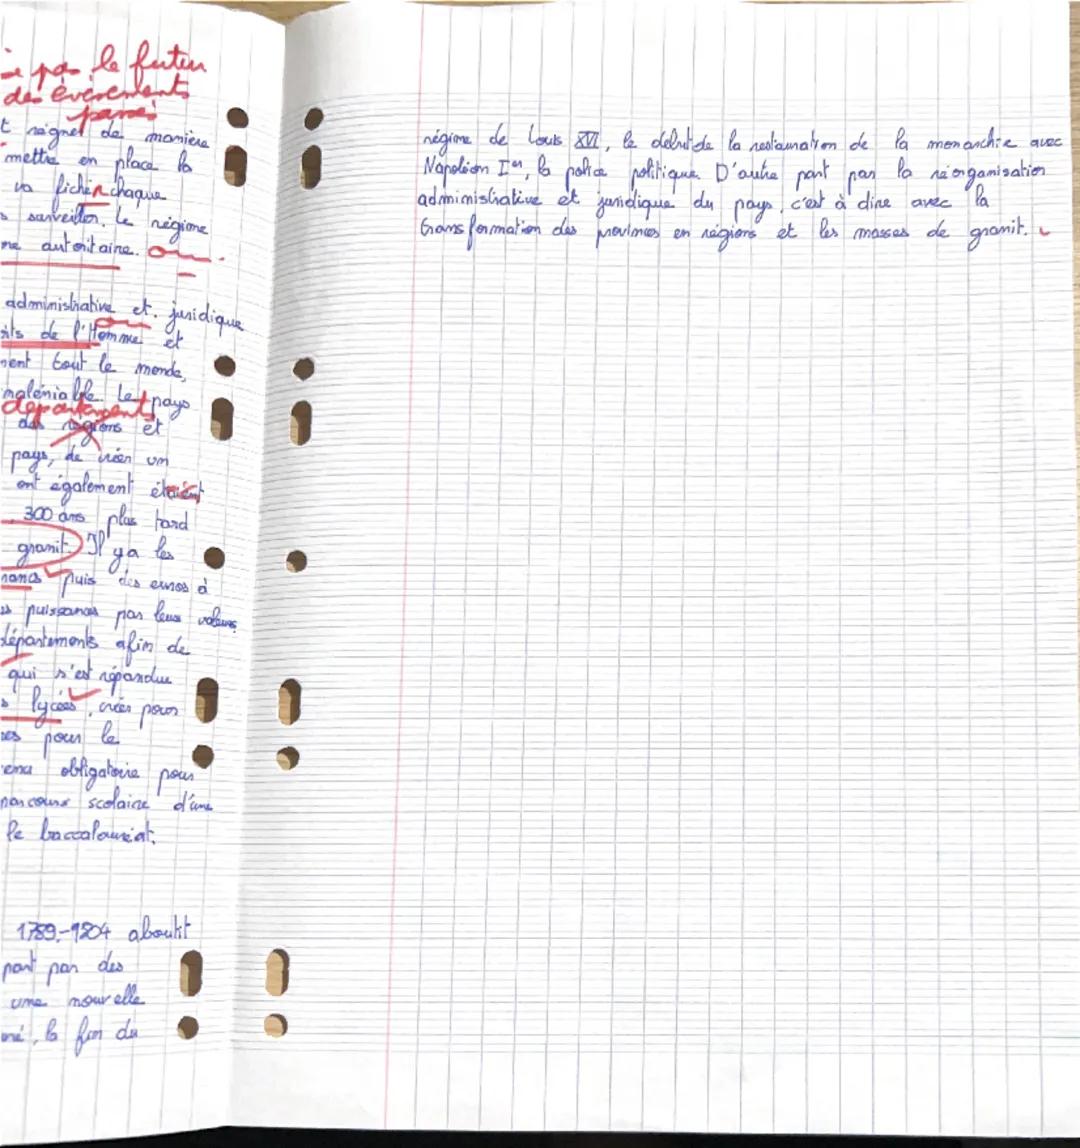 par le futur
des évènements
passés
régner de manière
mettre en place la
va ficher chaque
surveiller. Le régime
autoritaire.
administrative et juridique
de l'Homme et
tout le monde,
inaléniable. Le pays
départements
des régions et
pays, de créer un
ont également étaient
300 ans plus tard
granit. Il y a les
puis des euros à
puissances par leurs valeurs
départements afin de
qui s'est répandue
lycées, créer pour
pour le
obligatoire pour
parcours scolaire d'une
le baccalauréat.
1789-1804 aboutit
part par des
une nouvelle
la fin du
régime de Louis XVI, le début de la restauration de la monarchie avec
Napoléon Ier, la police politique. D'autre part par la réorganisation
administrative et juridique du pays, c'est à dire avec la
transformation des provinces en régions et les masses de granit.